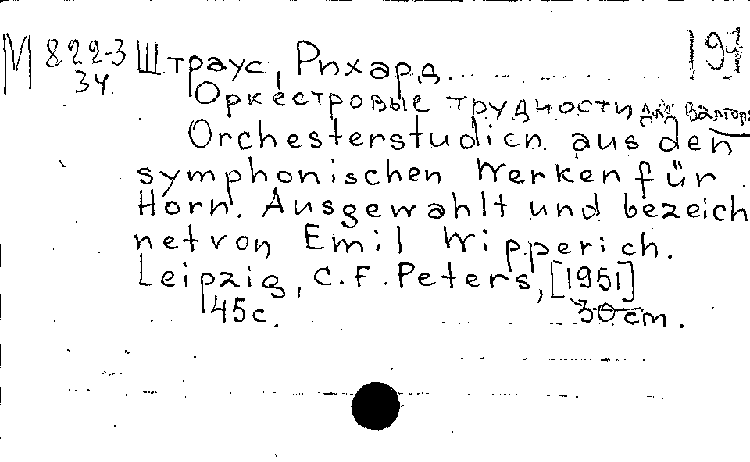 М 822-3 Штраус, Рихард.
34
Оркестровые трудности для валторн
Orchesterstudien aus den
symphonischen Werken für
Horn. Ausgewahlt und bezeich
net von Emil Wipperich.
Leipzig, C.F. Peters, [1951]
45 c. 30 cm.